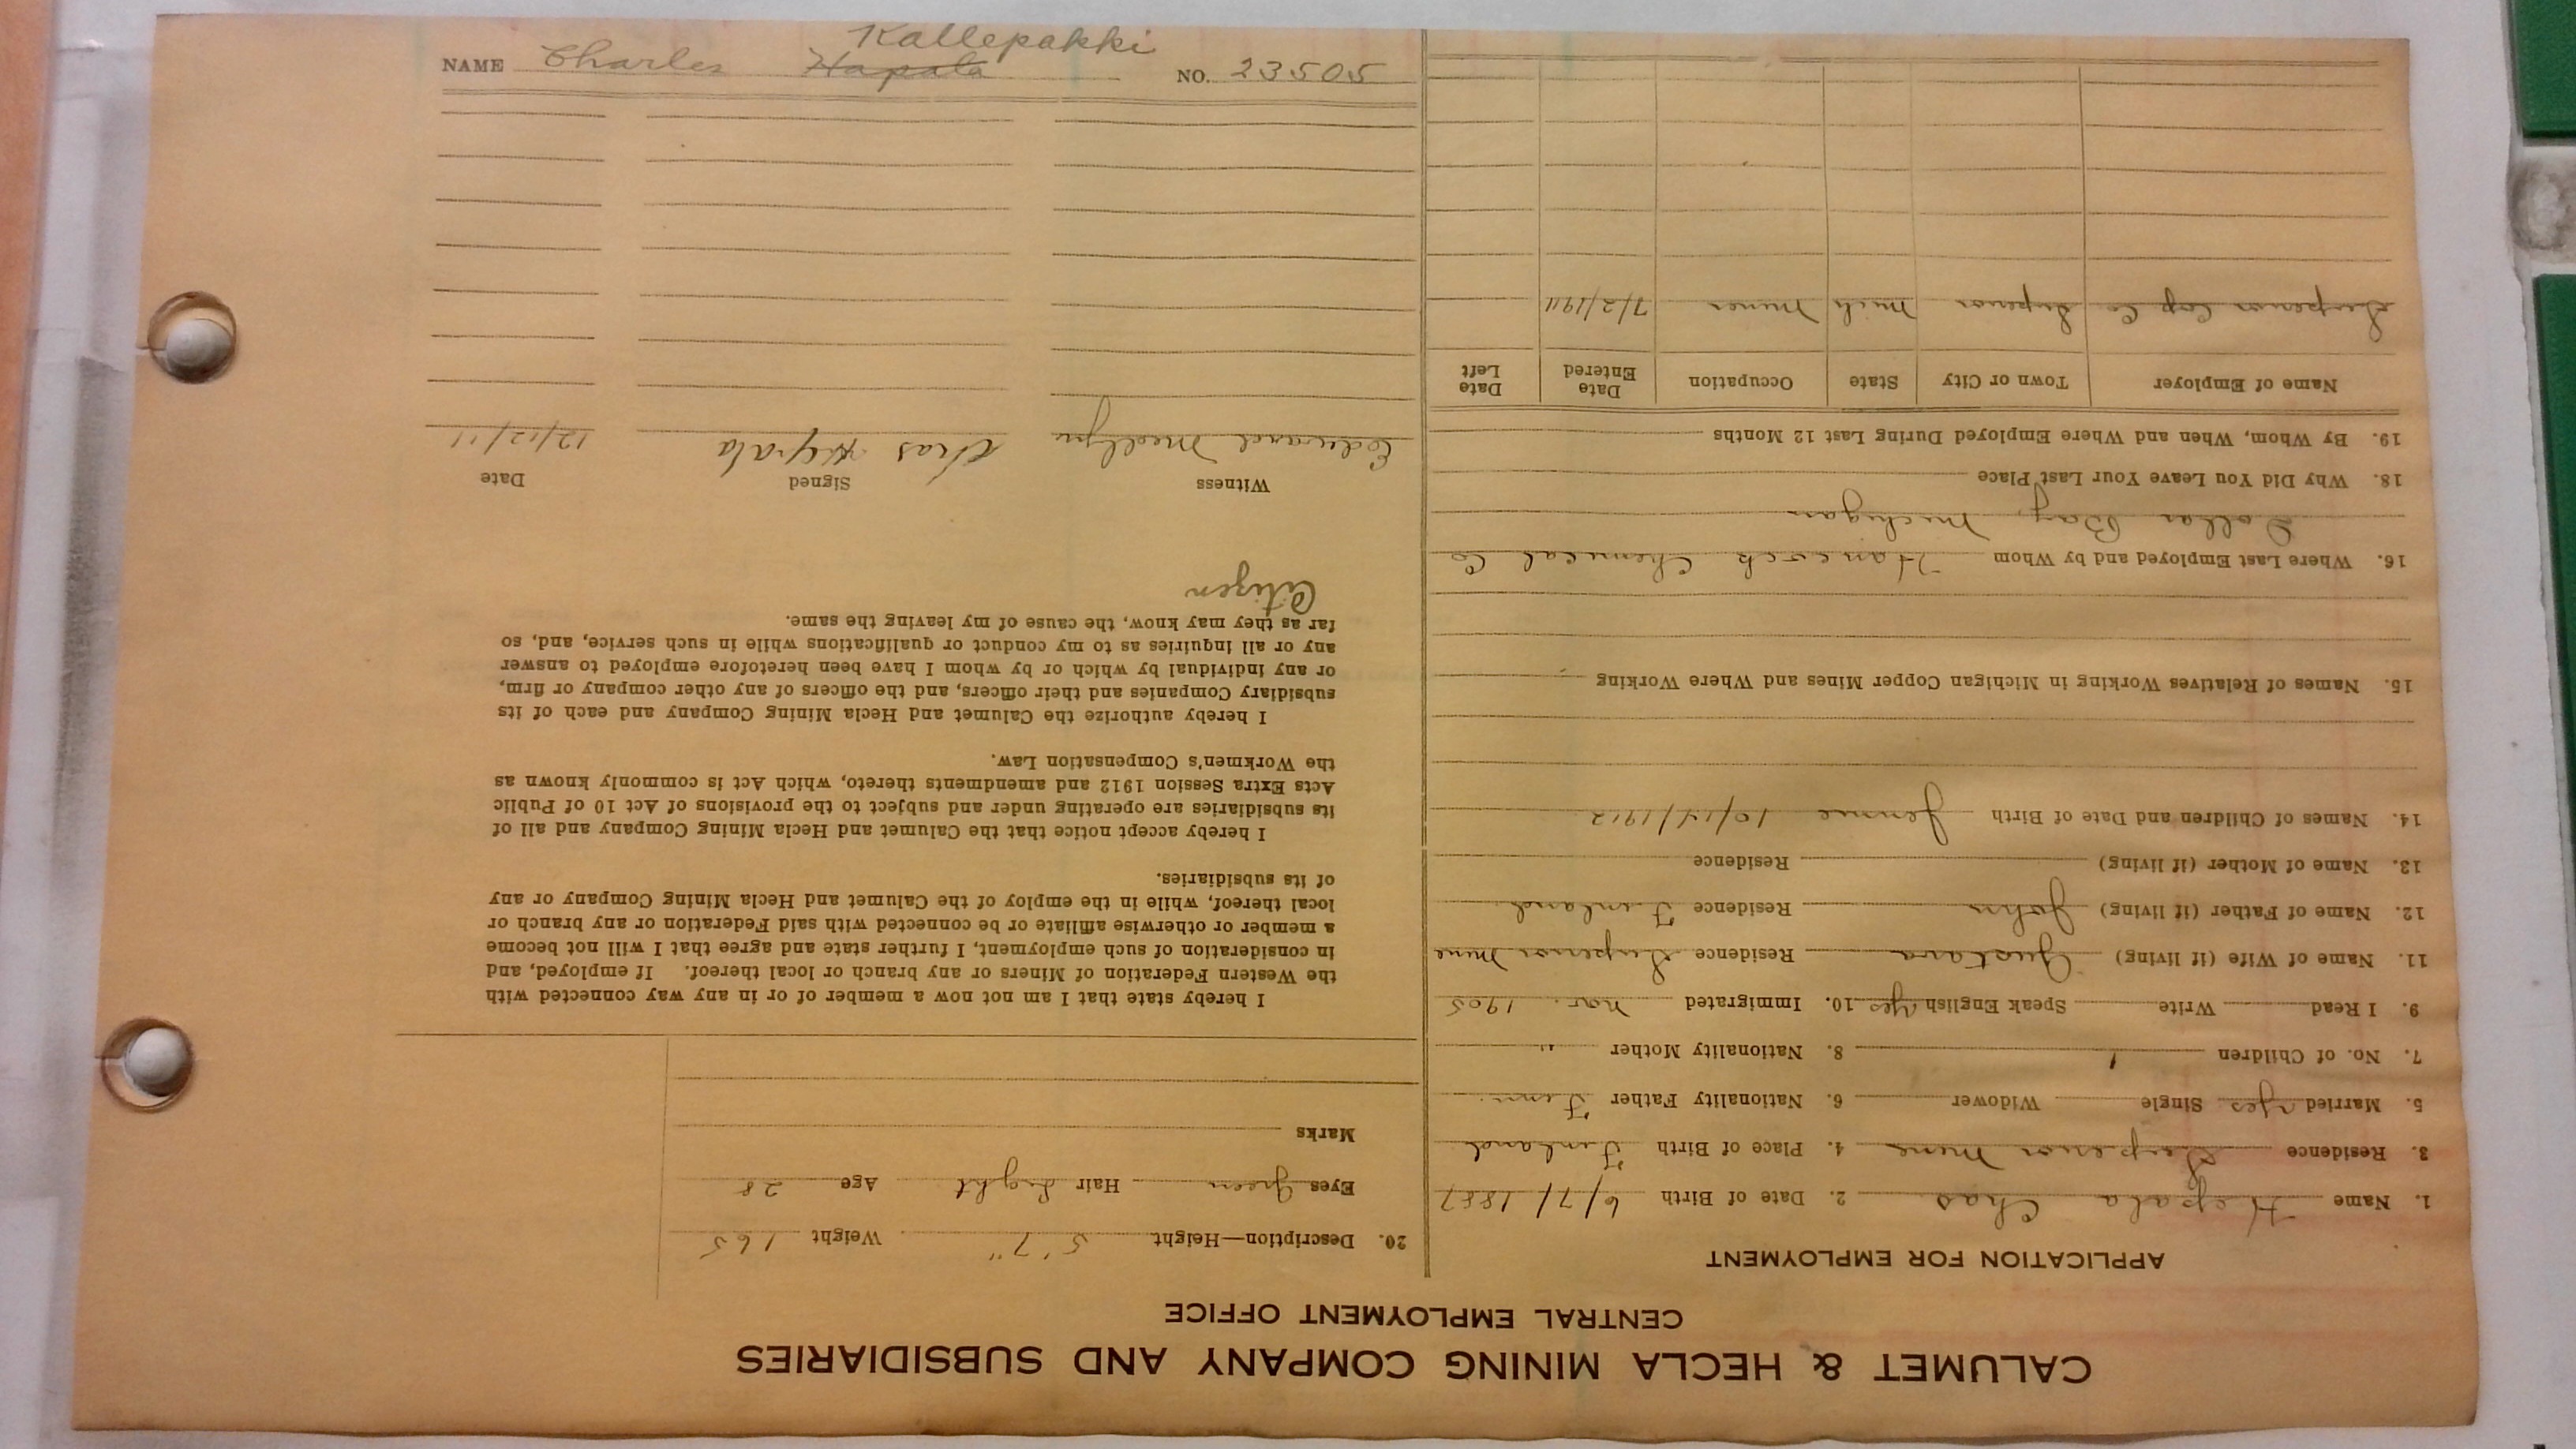 CALUMET & HECLA MINING COMPANY AND SUBSIDIARIES
CENTRAL EMPLOYMENT OFFICE
APPLICATION FOR EMPLOYMENT
1. Name Hepala Chas 2. Date of Birth 6/7/1887
3. Residence Superior Mine 4. Place of Birth Finland
5. Married yes Single Widower 6. Nationality Father Finn.
7. No. of Children 1 8. Nationality Mother "
9. I Read Write Speak English yes 10. Immigrated Nov. 1905
11. Name of Wife (if living) Gustava Residence Superior Mine
12. Name of Father (if living) John Residence Finland
13. Name of Mother (if living) Residence
14. Names of Children and Date of Birth Jennie 10/14/1912
15. Names of Relatives Working in Michigan Copper Mines and Where Working
16. Where Last Employed and by Whom Hancock Chemical Co
Dollar Bay, Michigan
18. Why Did You Leave Your Last Place
19. By Whom, When and Where Employed During Last 12 Months
Name of Employer Town or City State Occupation Date Entered Date Left
Superior Cop Co Superior Mich Miner 7/2/1911
20. Description—Height 5'7" Weight 165
Eyes Green Hair Light Age 28
Marks
I hereby state that I am not now a member of or in any way connected with
the Western Federation of Miners or any branch or local thereof. If employed, and
in consideration of such employment, I further state and agree that I will not become
a member or otherwise affiliate or be connected with said Federation or any branch or
local thereof, while in the employ of the Calumet and Hecla Mining Company or any
of its subsidiaries.
I hereby accept notice that the Calumet and Hecla Mining Company and all of
its subsidiaries are operating under and subject to the provisions of Act 10 of Public
Acts Extra Session 1912 and amendments thereto, which Act is commonly known as
the Workmen's Compensation Law.
I hereby authorize the Calumet and Hecla Mining Company and each of its
subsidiary Companies and their officers, and the officers of any other company or firm,
or any individual by which or by whom I have been heretofore employed to answer
any or all inquiries as to my conduct or qualifications while in such service, and, so
far as they may know, the cause of my leaving the same.
Citizen
Witness Signed Date
Edward Chas 12/12/11
Kallepakki
NAME Charles Hapala NO. 23505